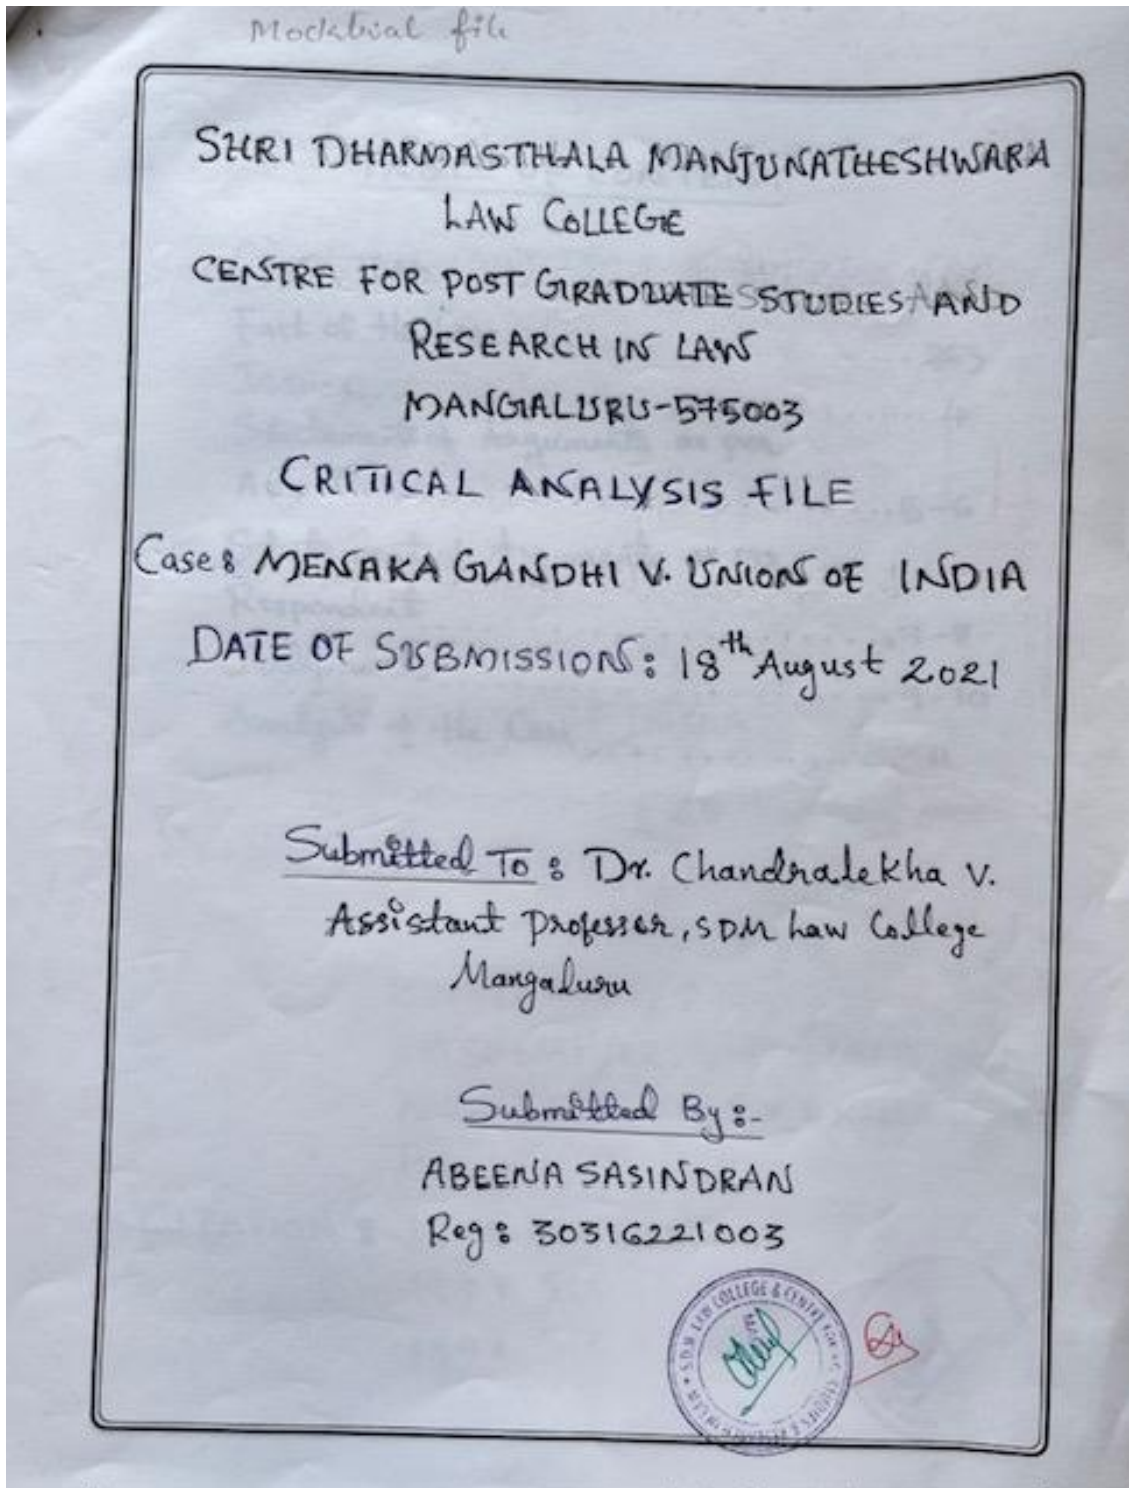 Mocktrial file
SHRI DHARMASTHALA MANJUNATHESHWARA
LAW COLLEGE
CENTRE FOR POST GRADUATE STUDIES AND
RESEARCH IN LAW
MANGALURU-575003
CRITICAL ANALYSIS FILE
Case: MENAKA GANDHI V. UNION OF INDIA
DATE OF SUBMISSION: 18th August 2021
Submitted To: Dr. Chandralekha V.
Assistant Professor, SDM Law College
Mangaluru
Submitted By:-
ABEENA SASINDRAN
Reg: 30316221003
S.D.M. LAW COLLEGE & CENTRE FOR P.G. STUDIES & RESEARCH IN LAW